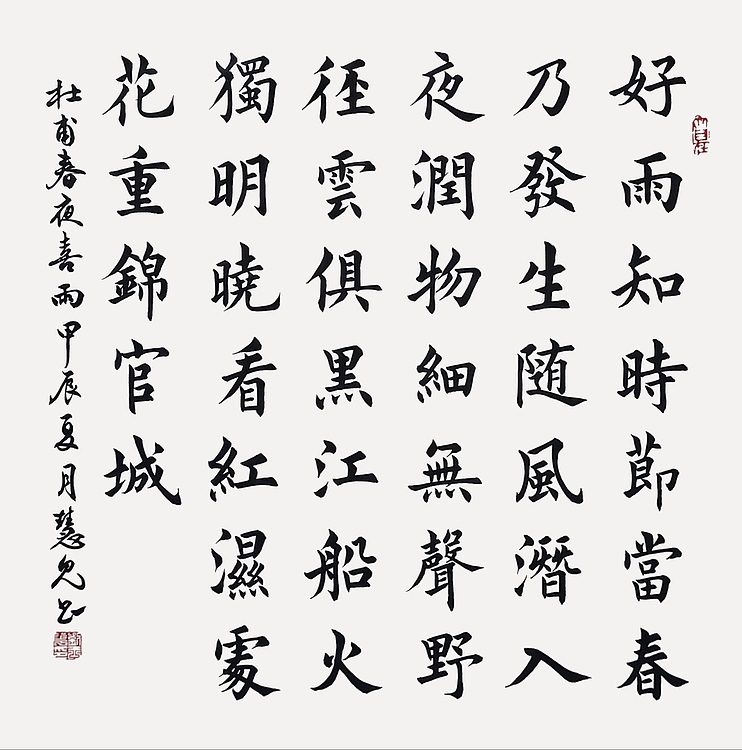 好雨知時節當春
乃發生随風潛入
夜潤物細無聲野
徑雲俱黑江船火
獨明曉看紅濕處
花重錦官城
杜甫春夜喜雨甲辰夏月慧兒書